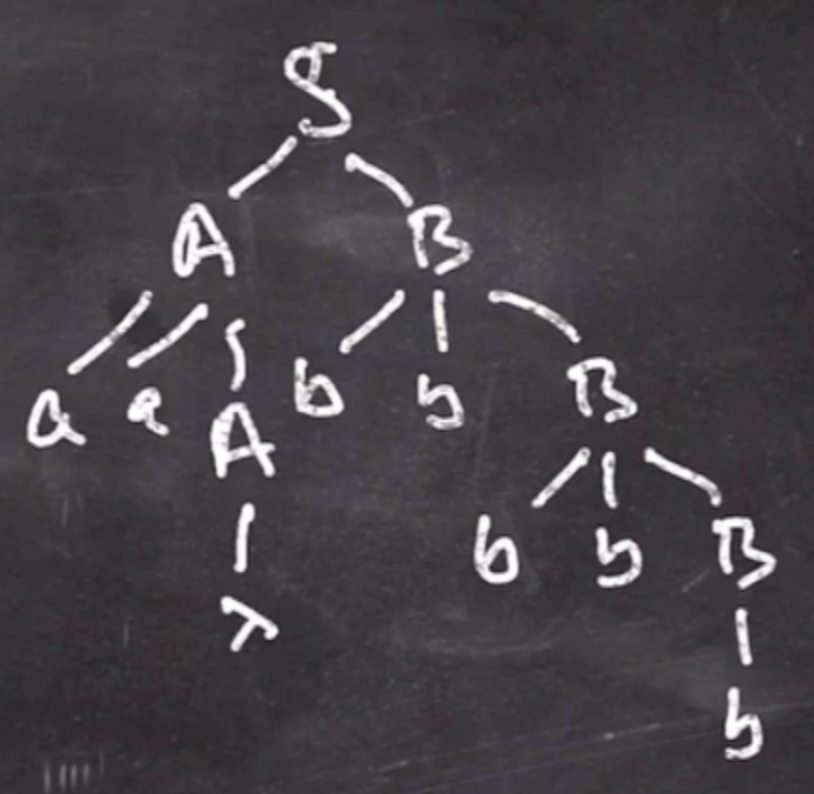 S
A B
a a A b b B
λ b b B
b